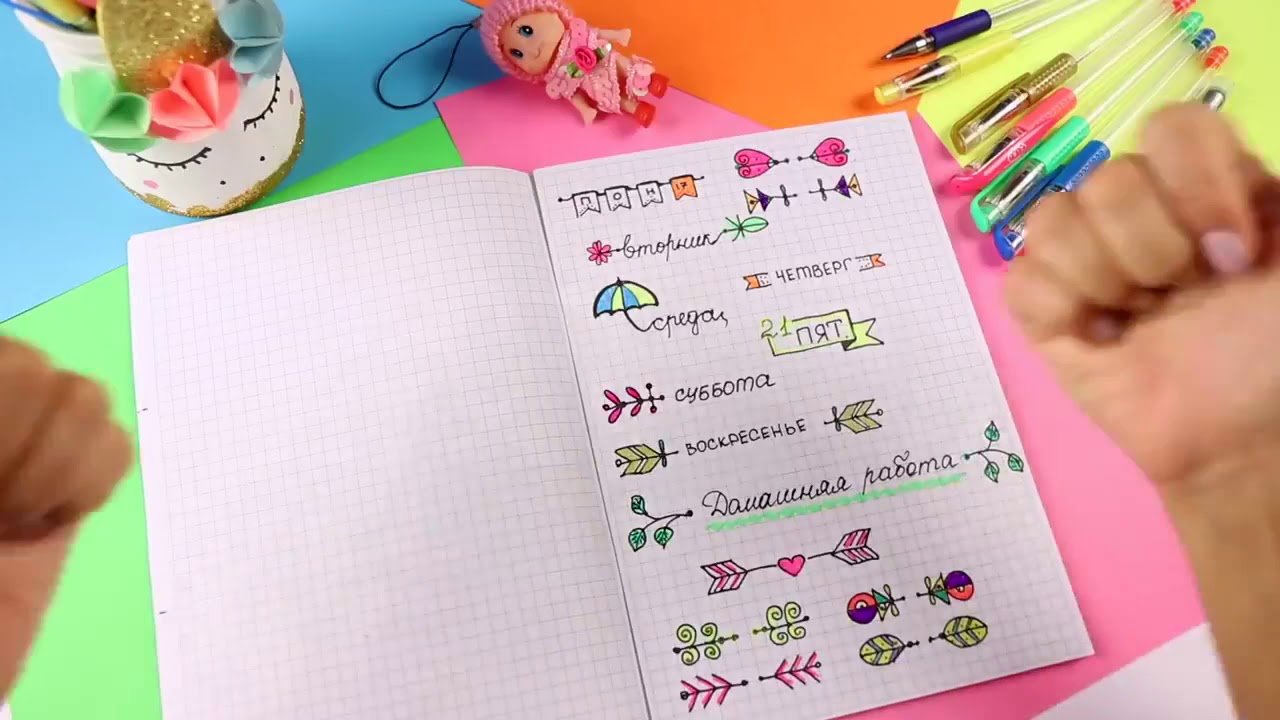 ПОН 17
вторник
ЧЕТВЕРГ
среда
21 ПЯТ.
СУББОТА
ВОСКРЕСЕНЬЕ
Домашняя работа